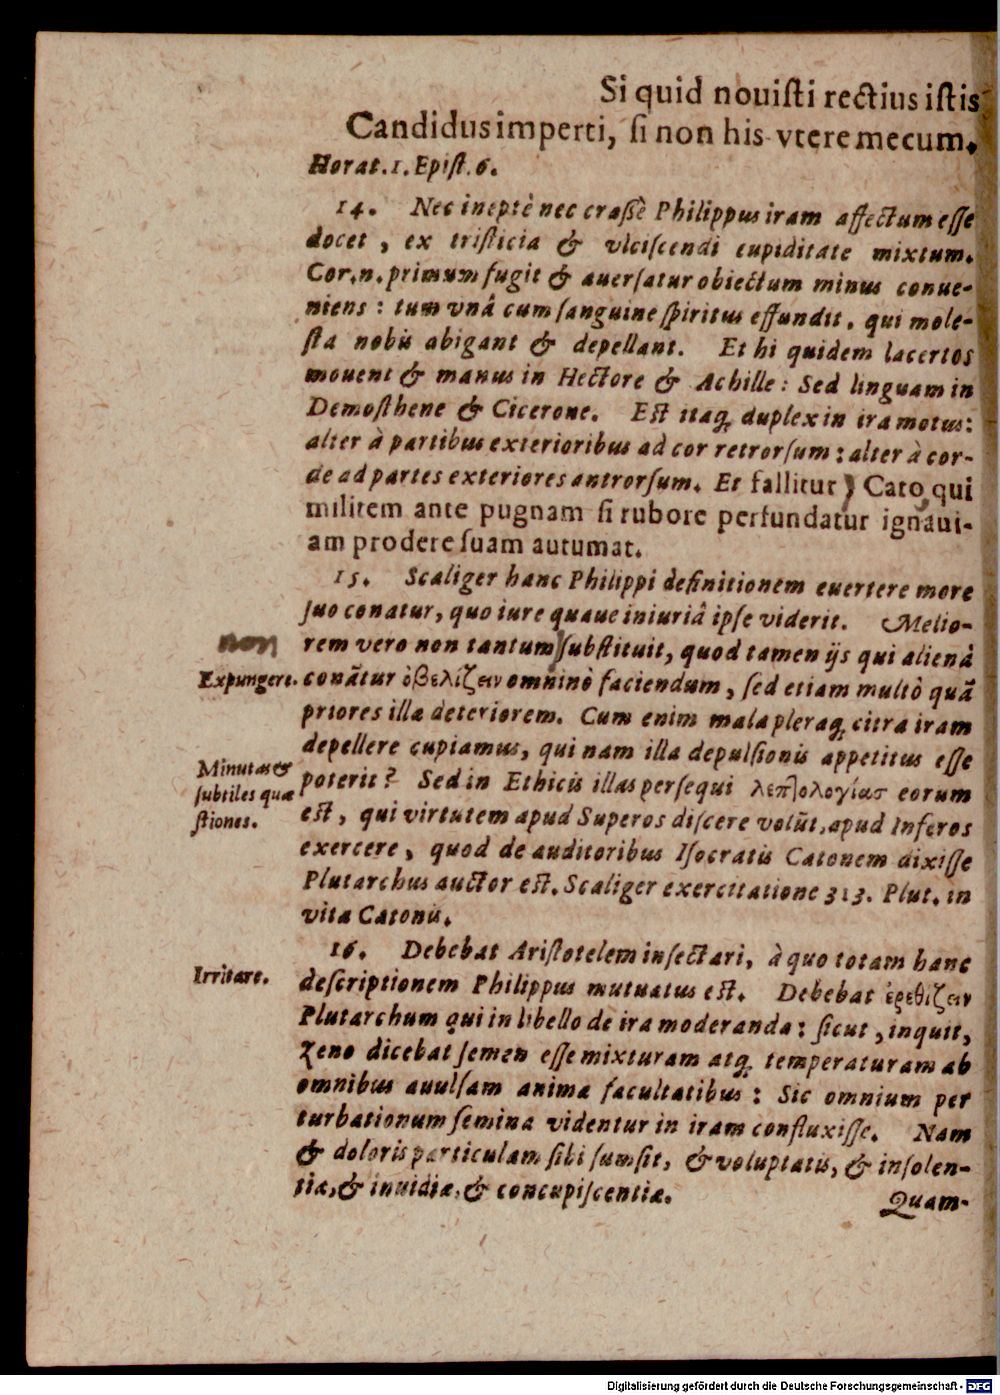 Si quid nouiſti rectius iſtis
Candidus imperti, ſi non his vtere mecum.
Horat. 1. Epiſt. 6.
14. Nec ineptè nec craßè Philippus iram affectum eſſe
docet, ex triſticia & vlciſcendi cupiditate mixtum.
Cor.n. primum fugit & auerſatur obiectum minus conue-
niens: tum vnâ cum ſanguine ſpiritus effundit, qui mole-
ſta nobis abigant & depellant. Et hi quidem lacertos
mouent & manus in Hectore & Achille: Sed linguam in
Demoſthene & Cicerone. Eſt itaq; duplex in ira motus:
alter à partibus exterioribus ad cor retrorſum: alter à cor-
de ad partes exteriores antrorſum. Et fallitur Cato, qui
militem ante pugnam ſi rubore perfundatur ignaui-
am prodere ſuam autumat.
15. Scaliger hanc Philippi definitionem euertere more
ſuo conatur, quo iure quaue iniuriâ ipſe viderit. Melio-
non
rem vero non tantum ſubſtituit, quod tamen ijs qui alienâ
Expungere.
conãtur ὀβελίζειν omninò faciendum, ſed etiam multò quã
priores illa deteriorem. Cum enim mala pleraq; citra iram
depellere cupiamus, qui nam illa depulſionis appetitus eſſe
Minutas &
ſubtiles quæ
ſtiones.
poterit? Sed in Ethicis illas perſequi λεπτολογίας eorum
eſt, qui virtutem apud Superos diſcere volũt, apud Inferos
exercere, quod de auditoribus Iſocratis Catonem dixiſſe
Plutarchus auctor eſt. Scaliger exercitatione 313. Plut. in
vita Catonis.
16. Debebat Ariſtotelem inſectari, à quo totam hanc
Irritare.
deſcriptionem Philippus mutuatus eſt. Debebat ἐρεθίζειν
Plutarchum qui in libello de ira moderanda: ſicut, inquit,
Zeno dicebat ſemen eſſe mixturam atq; temperaturam ab
omnibus auulſam anima facultatibus: Sic omnium per
turbationum ſemina videntur in iram confluxiſſe. Nam
& doloris particulam ſibi ſumſit, & voluptatis, & inſolen-
tiæ, & inuidiæ, & concupiſcentiæ.
Quam-
Digitalisierung gefördert durch die Deutsche Forschungsgemeinschaft - DFG